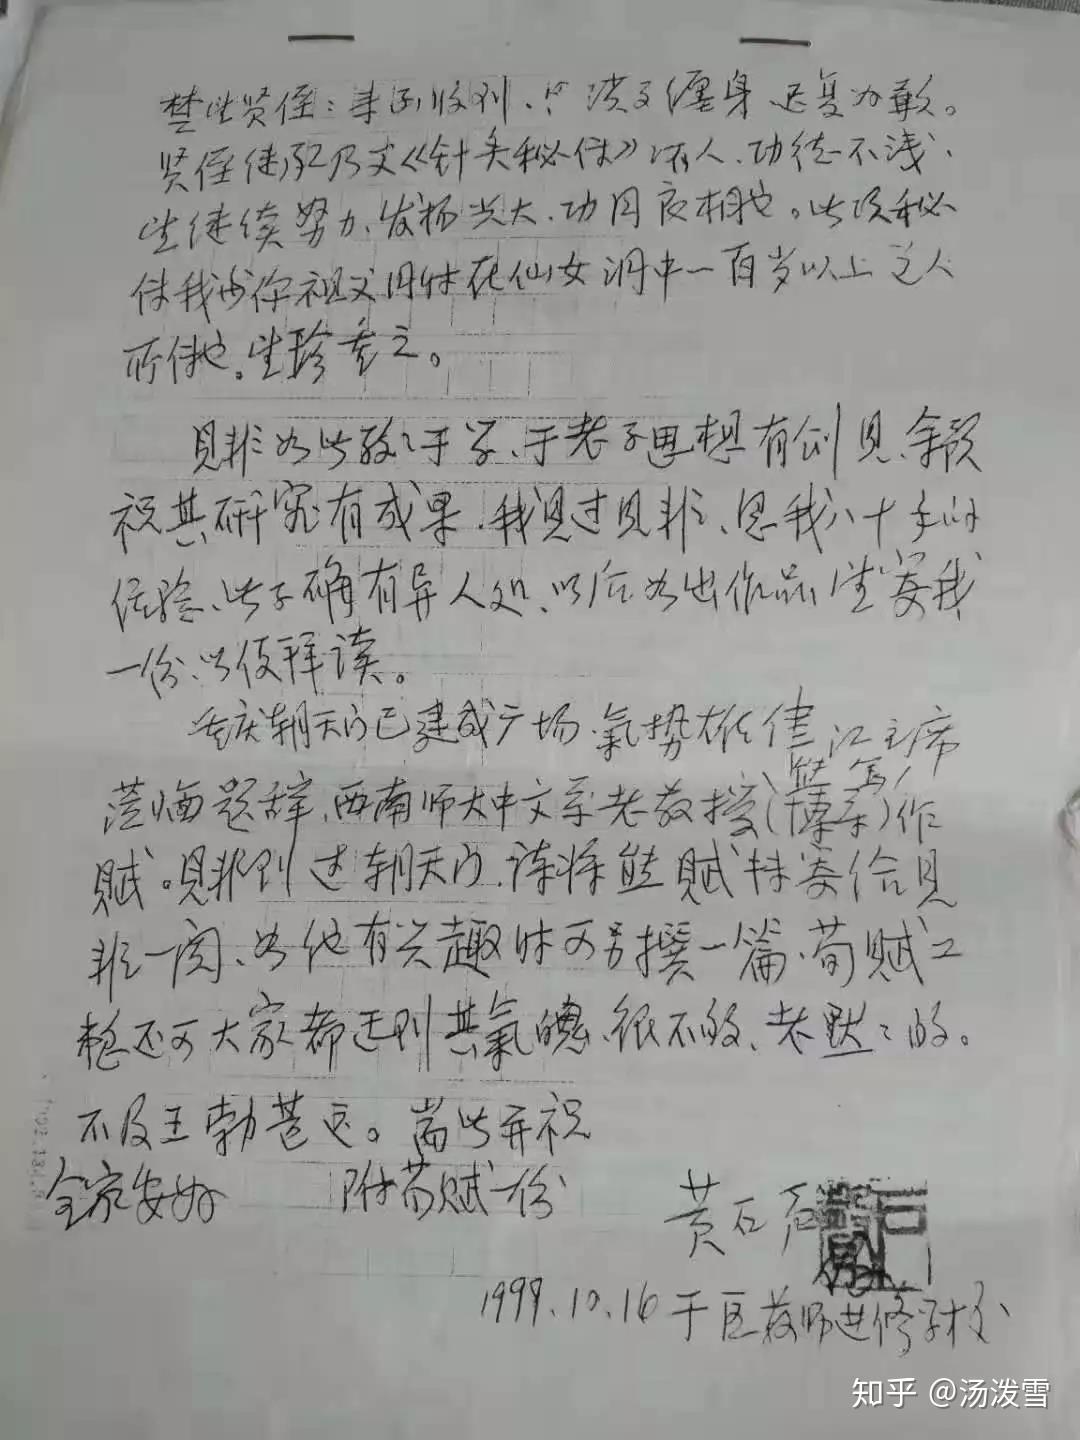 贤侄：来函收到、 缠身、迟复为歉。
贤侄继承乃丈《针灸秘传》济人、功德不浅、
望继续努力、发扬光大、功同良相也。此项秘
传我与你祖父同时在仙女洞中一百岁以上之人
所传也。望珍重之。
见非如此致之于学、于老子思想有创见、余预
祝其研究有成果，我见过见非、思我八十年的
经验、此子确有异人处、以后如出作品望寄我
一份、以便拜读。
重庆朝天门已建成广场、氣势雄伟 江主席
莅临题辞、西南师大中文系老教授( )作
赋。见非到过朝天门、 将 赋 寄给见
非一阅、如他有兴趣时可另撰一篇、荀赋工
整还可大家都 到其氣魄、很不够、老默〻的。
不及王勃 。耑此并祝
全家安好 附荀赋一份
黄石
1999.10.16 于医药师进修学校
知乎 @汤泼雪